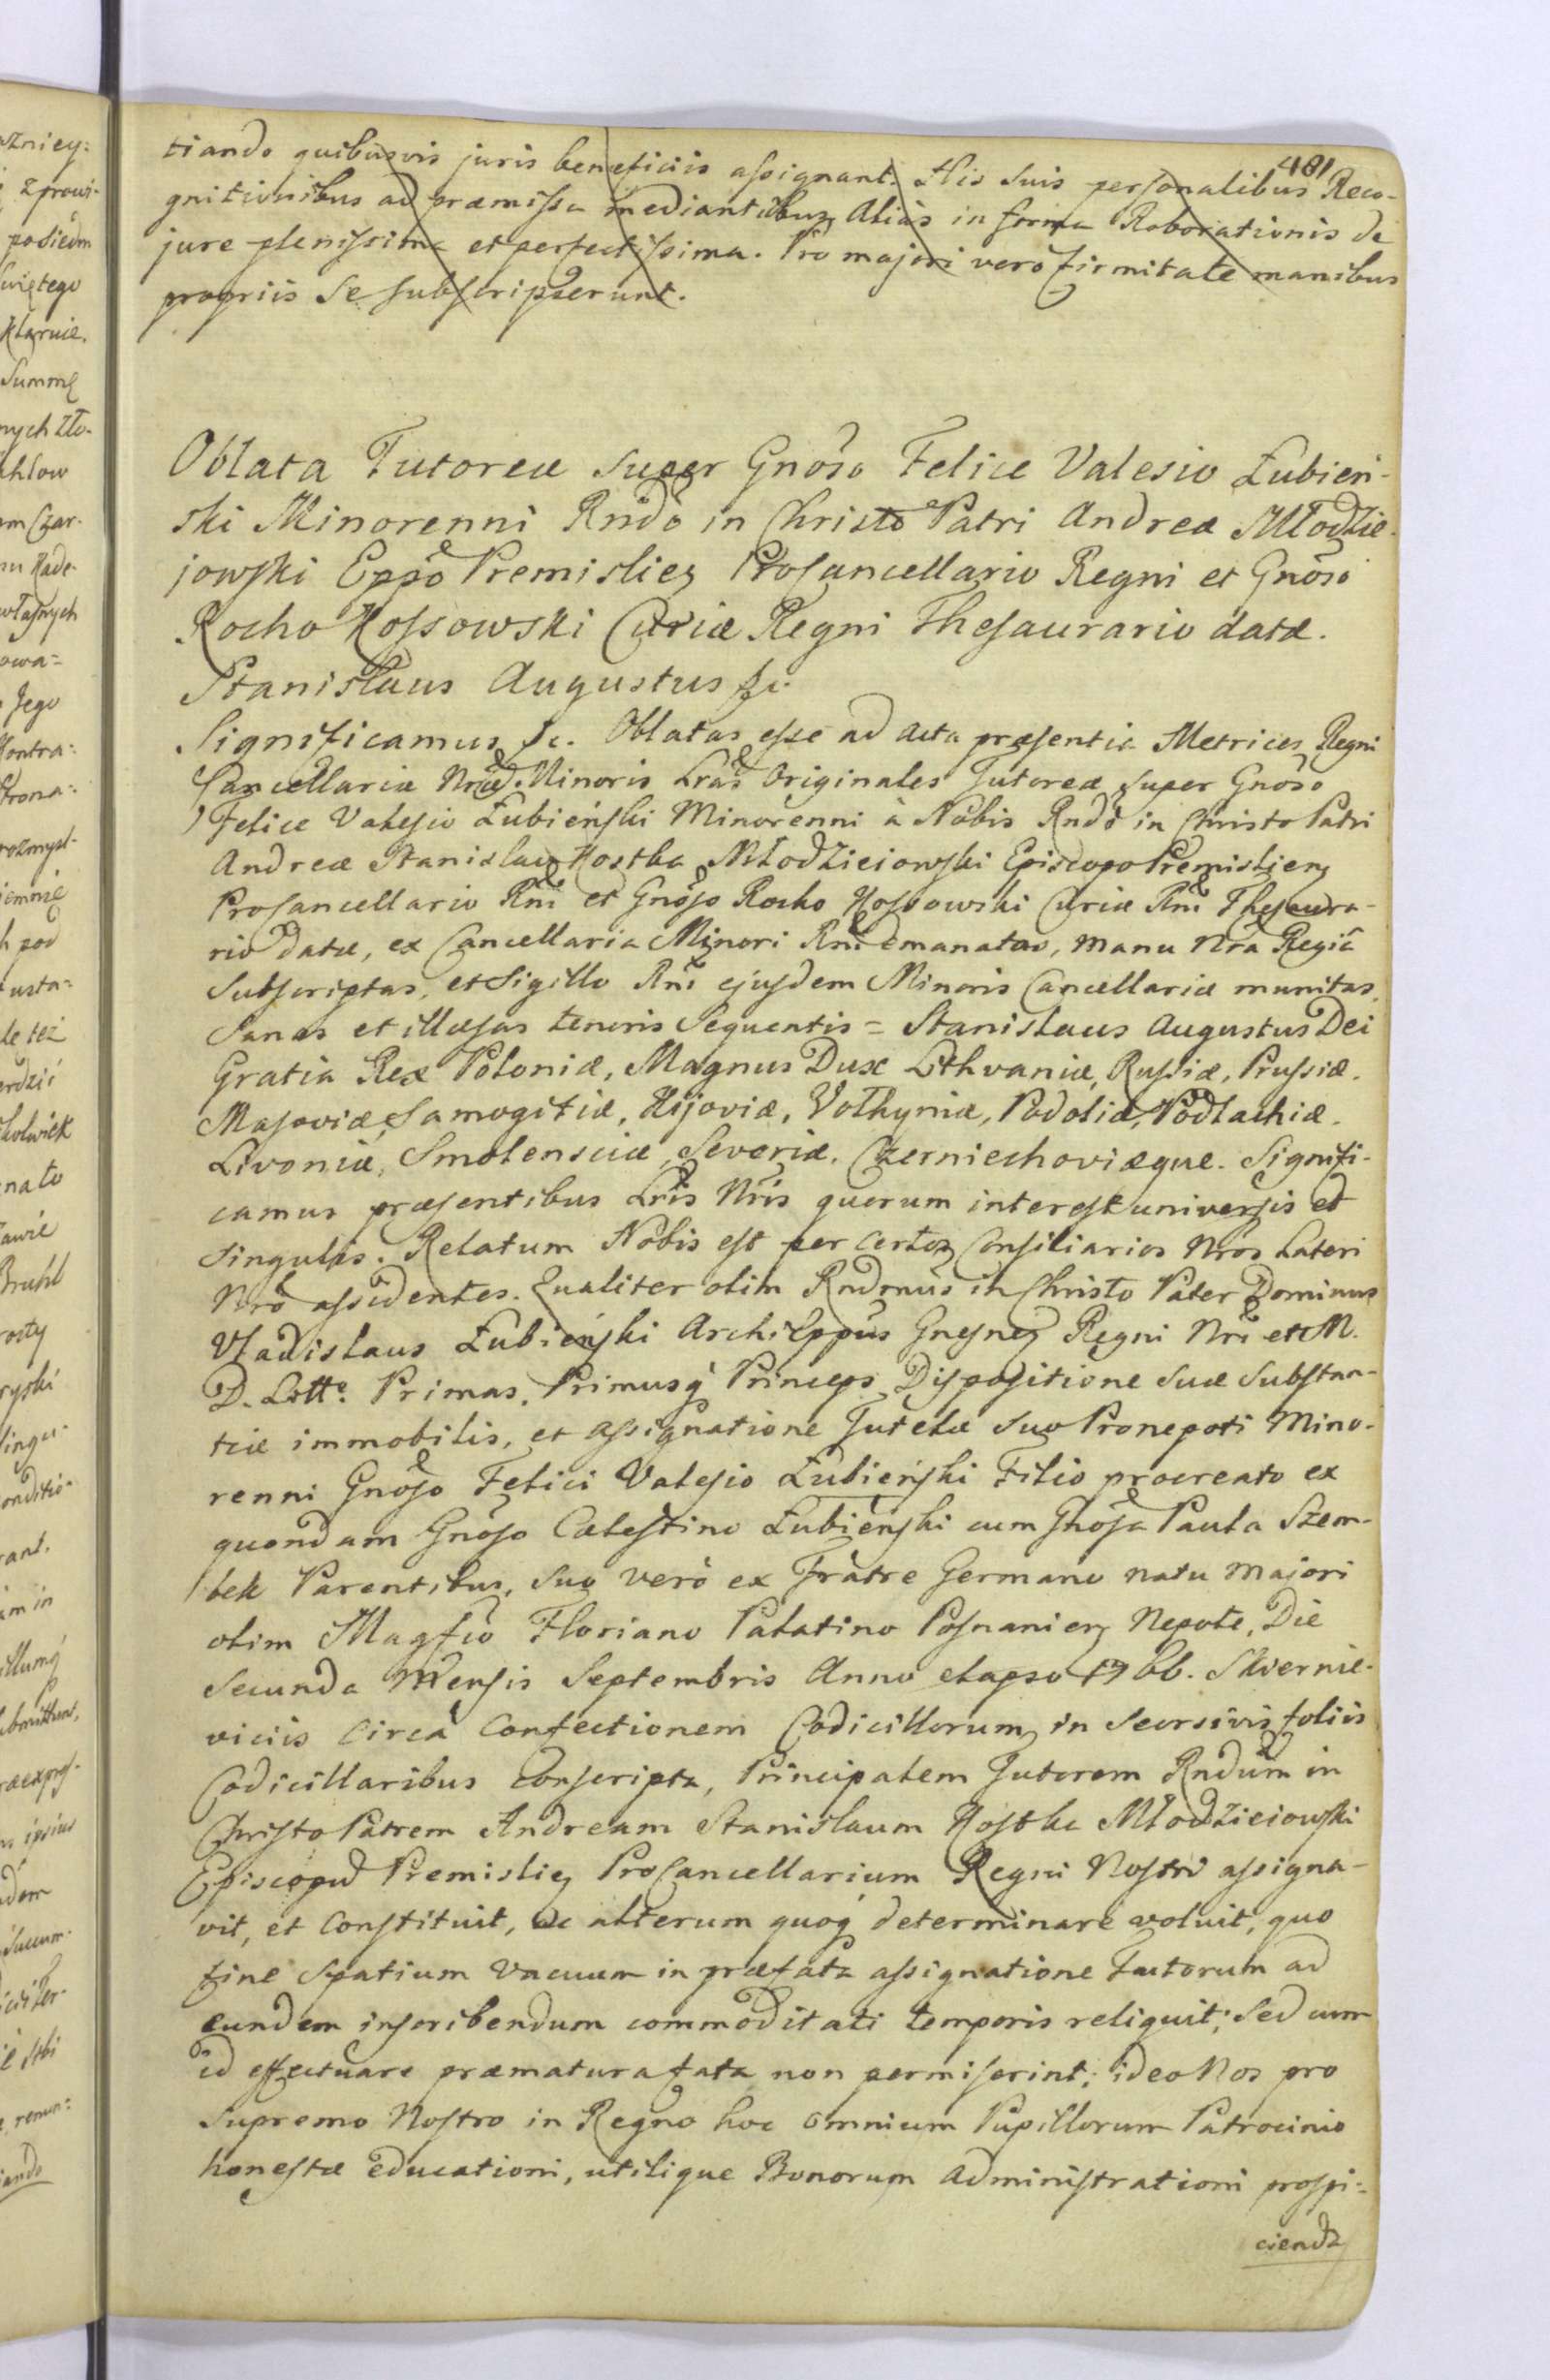 481
tiando quibusvis juris beneficiis assignant. His suis personalibus Reco-
gnitionibus ad præmissa mediantibus Alias in forma Roborationis de
jure plenissima et perfectissima. Pro majori vero firmitate manibus
propriis Se subscripserunt.
Oblata Tutoreæ super Gnoso Felice Valesio Łubień-
ski Minorenni Rndo in Christo Patri Andreæ Młodzie-
jowski Eppo Premislien Procancellario Regni et Gnoso
Rocho Kossowski Curiæ Regni Thesaurario datæ.
Stanislaus Augustus &c.
Significamus &c. Oblatas esse ad Acta præsentia Metrices Regni
Cancellariæ Nræ Minoris Lras Originales Tutoreæ super Gnoso
Felice Valesio Łubieński Minorenni à Nobis Rndo in Christo Patri
Andreæ Stanislao Kostka Młodzieiowski Episcopo Premislien
Procancellario Rni et Gnoso Rocho Kossowski Curiæ Rni Thesaura-
rio datæ, ex Cancellaria Minori Rni emanatas, manu Nra Regiâ
Subscriptas, et Sigillo Rni ejusdem Minoris Cancellariæ munitas,
Sanas et illæsas tenoris Sequentis = Stanislaus Augustus Dei
Gratia Rex Poloniæ, Magnus Dux Lithvaniæ, Russiæ, Prussiæ,
Masoviæ, Samogitiæ, Kijoviæ, Volhyniæ, Podoliæ, Podlachiæ,
Livoniæ, Smolensciæ, Severiæ, Czerniechoviæque. Signifi-
camus præsentibus Lris Nris quorum interest universis et
Singulis. Relatum Nobis est per certos Consiliarios Nros Lateri
Nro assidentes. Qualiter olim Rndmus in Christo Pater Dominus
Vladislaus Łubieński Archieppus Gnesnen Regni Nri et M.
D. Litt. Primas, Primusq Princeps Dispositione suæ Substan-
tiæ immobilis, et assignatione Tutelæ suo Pronepoti Mino-
renni Gnoso Felici Valesio Łubieński Filio procreato ex
quondam Gnoso Cælestino Łubieński cum Gnosa Paula Szem-
bek Parentibus, suo verò ex Fratre Germano natu majori
olim Magfco Floriano Palatino Posnanien Nepote, Die
Secunda Mensis Septembris Anno elapso 1766. Skiernie-
viciis Circa Confectionem Codicillorum in Seorsivis foliis
Codicillaribus conscripta, Principalem Tutorem Rndum in
Christo Patrem Andream Stanislaum Kostka Młodzieiowski
Episcopum Premislien ProCancellarium Regni Nostri assigna-
vit, et Constituit, ac alterum quoq determinare voluit, quo
fine Spatium vacuum in præfata assignatione Tutorum ad
eundem inscribendum commoditati temporis reliquit; Sed cum
id effectuare præmatura fata non permiserint; ideo Nos pro
Supremo Nostro in Regno hoc omnium Pupillorum Patrocinio
honestæ educationi, utilique Bonorum Administrationi prospi-
ciendo